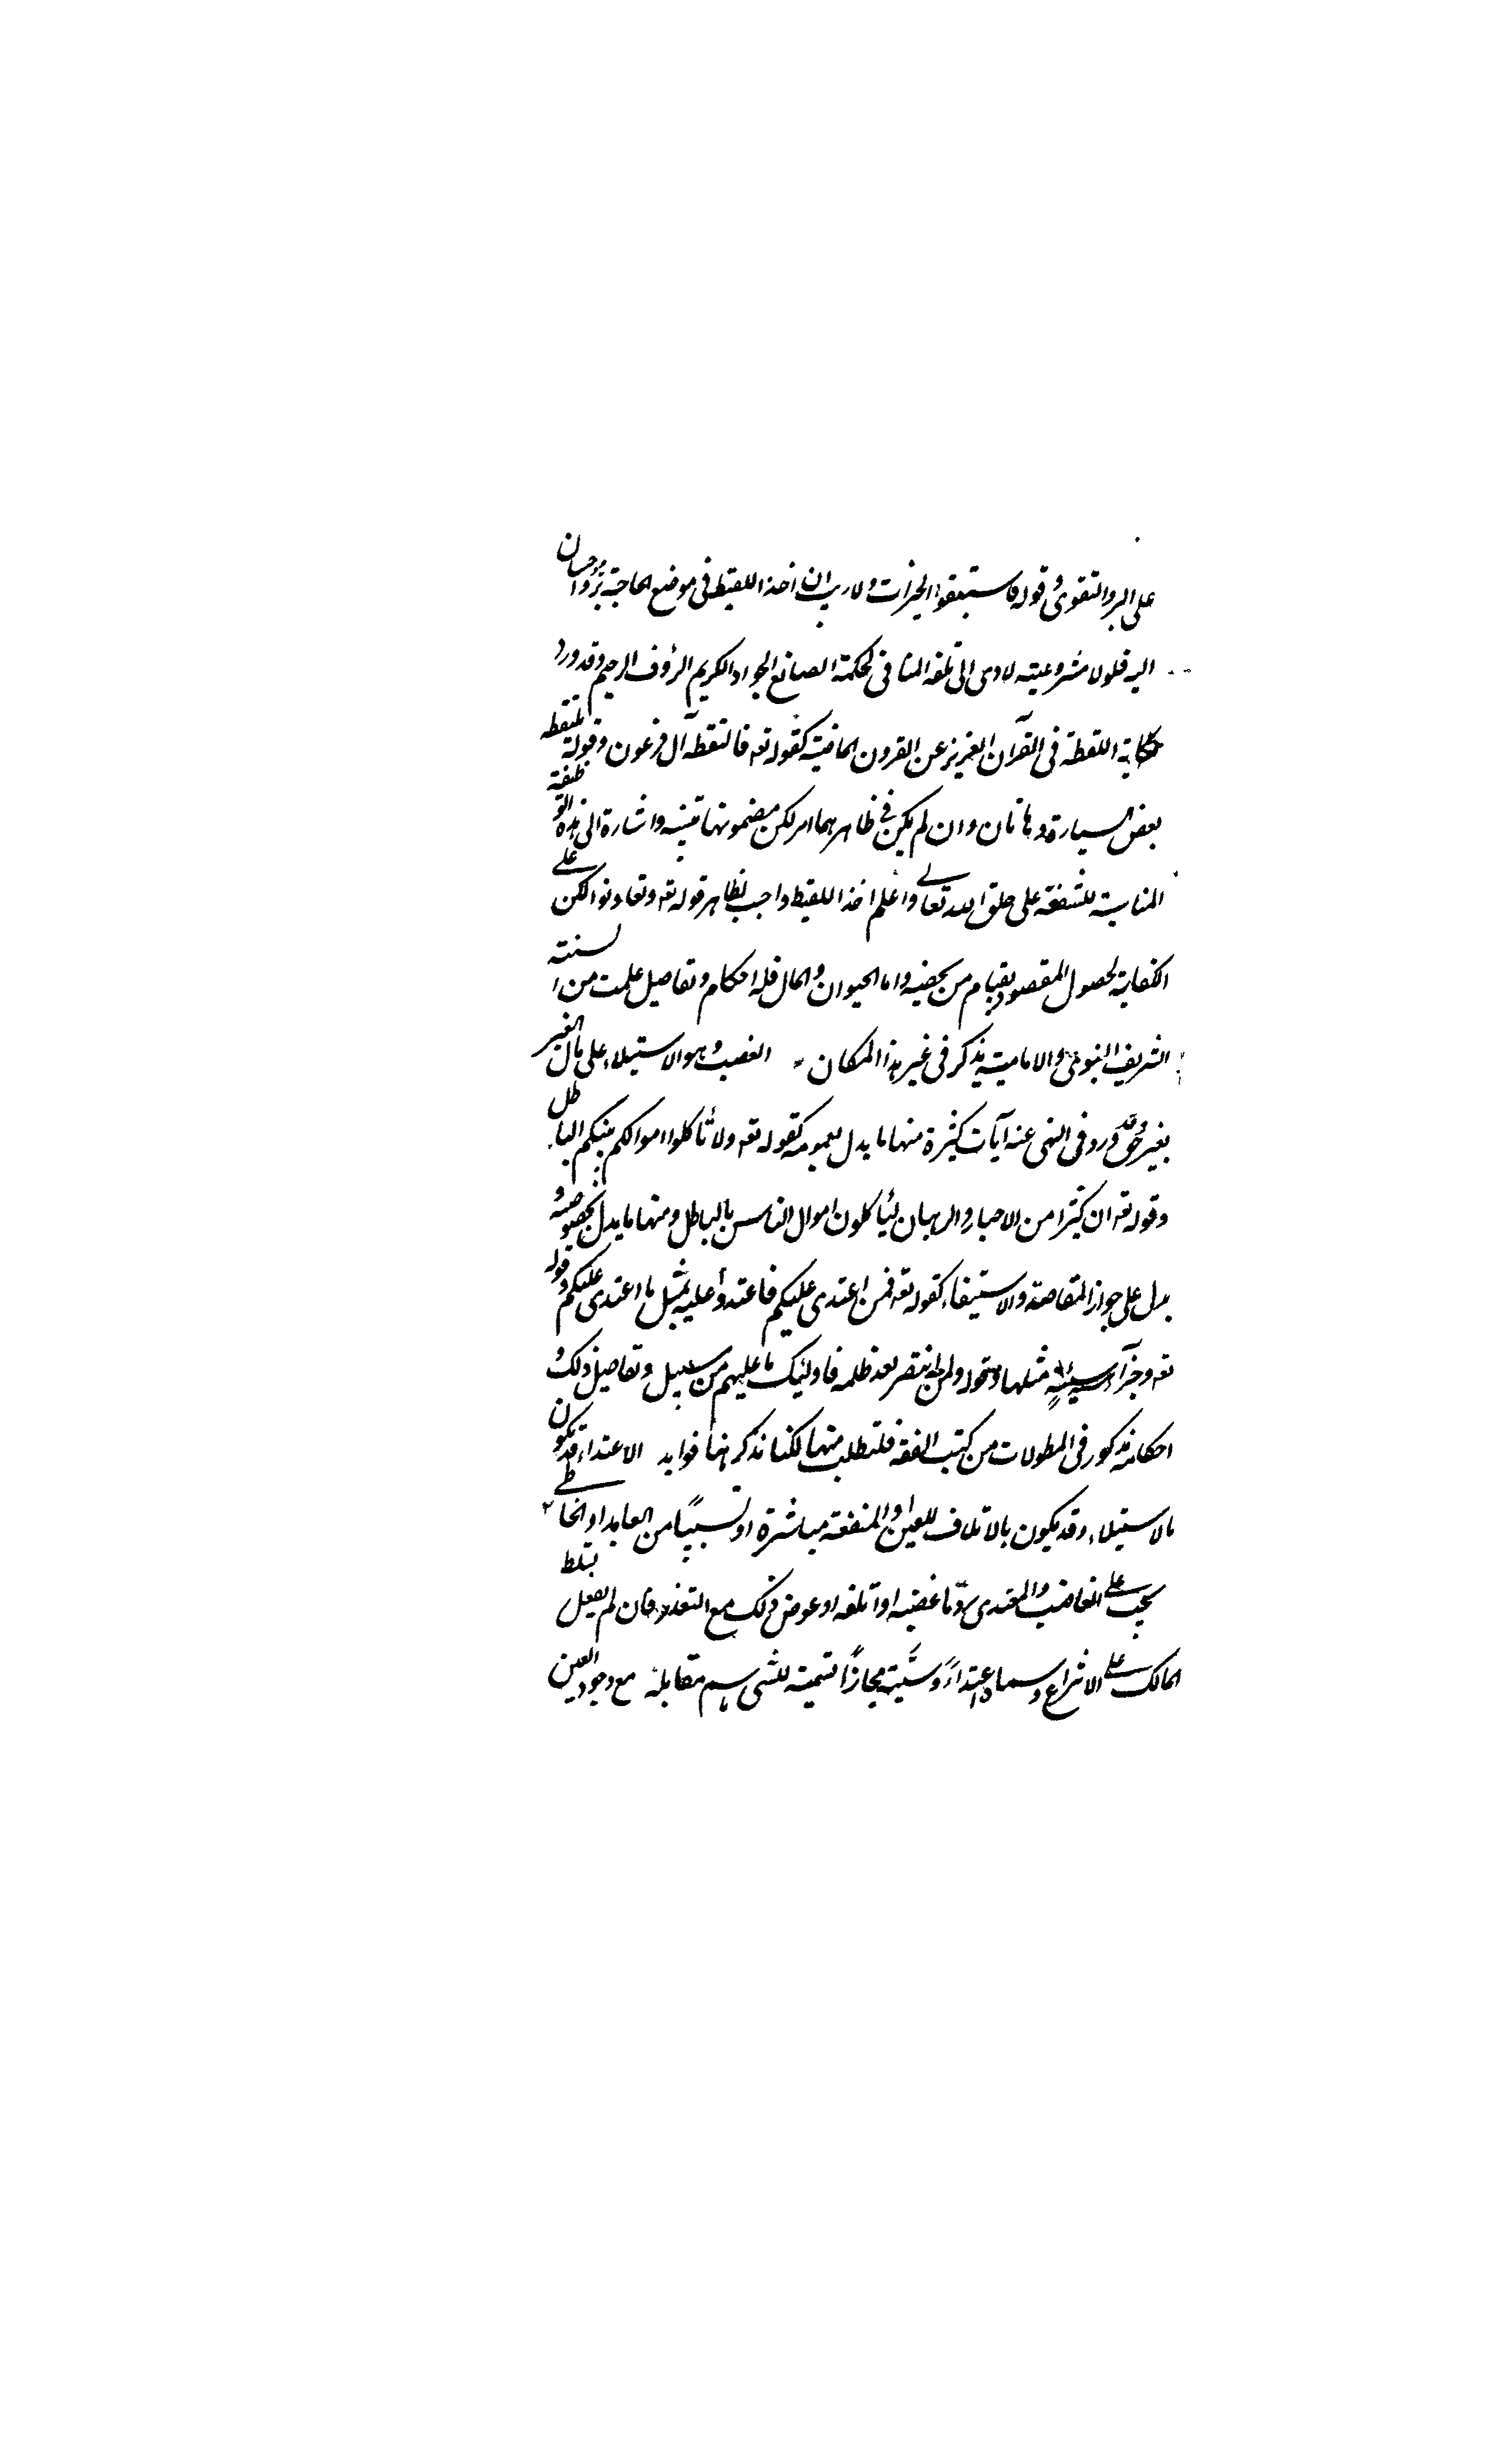 على البر والتقوى وقوله فاستبقوا الخيرات ولا ريب ان اخذ اللقيط فى موضع الحاجة بر واحسان
اليه فلولا مشروعيته لادى الى تلفه المنافى لحكمة الصانع الجواد الكريم الرؤف الرحيم وقد ورد
حكاية اللقطة فى القرآن العزيز عن القرون الماضية كقوله تعه فالتقطه آل فرعون وقوله يلتقطه
بعض السيارة وهاتان وان لم يكن فى ظاهرهما امر لكن مضمونهما تنبيه واشارة الى هذه
المناسبة للشفقة على خلق الله تعالى واعلم اخذ اللقيط واجب لظاهر قوله تعه وتعاونوا لكن على
الكفاية لحصول المقصود بقيام من يحضيه واما الحيوان والمال فله احكام وتفاصيل علمت من السنة
الشريف النبوى والامامية يذكر فى غير هذا المكان الغصب وهو الاستيلاء على مال الغير
بغير حق وقد ورد فى النهى عنه آيات كثيرة منها ما يدل بعمومه كقوله تعه ولا تأكلوا اموالكم بينكم بالباطل
وقوله تعه ان كثيرا من الاحبار والرهبان ليأكلون اموال الناس بالباطل ومنها ما يدل بخصوصه و
يدل على جواز المقاصة والاستيفاء كقوله تعه فمن اعتدى عليكم فاعتدوا عليه بمثل ما اعتدى عليكم وقوله
تعه وجزآء سيئة سيئة مثلها وقوله ولمن انتصر بعد ظلمه فاولئك ما عليهم من سبيل وتفاصيل ذلك و
احكامه مذكور فى المطولات من كتب الفقه فلتطلب منها لكنا نذكر هنا فوايد الاعتداء قد يكون
بالاستيلاء وقد يكون بالاتلاف للعين او المنفعة مباشرة او تسبيبًا من العامد او الخاطى
يجب على الغاصب والمعتدى ردّ ما غصبه او اتلفه او عوض ذلك مع التعذر فان لم يفعل تسلط
المالك على الانتزاع وسماه اعتداءً وسيئة مجازًا تسمية للشى باسم مقابله مع وجود العين